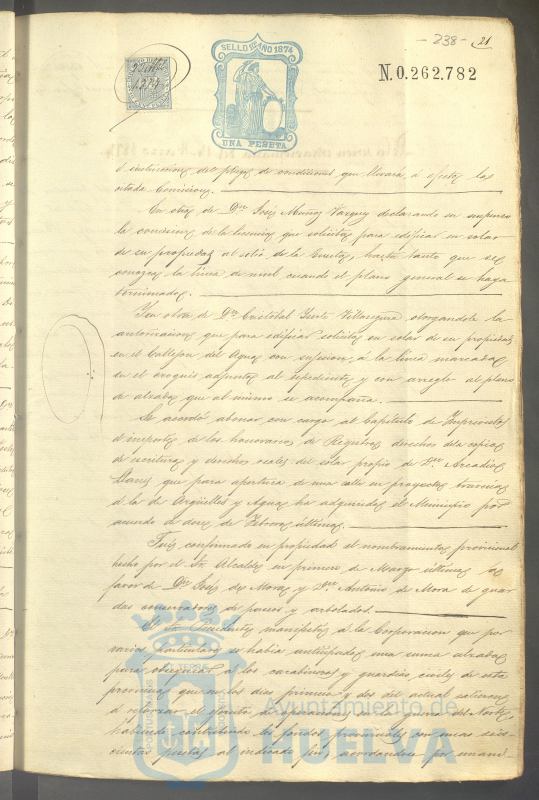 - 238 - 21
SELLO 11º AÑO 1874
N. 0.262.782
UNA PESETA
é instrucciones del pliego de condiciones que llevará á efecto las
citada Comisiones.
En otra de Dn. José Muñoz Vazquez declarando en suspenso
la concesion de la licencia que solicita para edificar en solar
de su propiedad al sitio de la hasta tanto que se
conozca la línea de nivel cuando el plano general se haya
terminado.
Y en otra de Dn. Cristobal Garcia Villasegura, otorgandole la
autorizacion que para edificar solicita en solar de su propiedad
en el Callejon del Agua con sujecion á la línea marcada
en el croquis adjunto al espediente y con arreglo al plano
de alzada que al mismo se acompaña.
Se acordó abonar con cargo al Capítulo de Imprevistos
el importe de los honorarios de Registro, derechos de la copia
de escritura y derechos reales del solar propio de Dn. Arcadio
que para apertura de una calle en proyecto travesía
á la de Argüelles y Agua ha adquirido el Municipio por
acuerdo de doce de Febrero último.
Fué confirmado en propiedad el nombramiento provisional
hecho por el Sr. Alcalde en primero de Marzo último á
favor de Dn. José de Mora y Dn. Antonio de Mora de guar
das conservadores de paseos y arbolados.
El Sr. Presidente manifestó á la Corporacion que por
varios particulares se habia anticipado una suma alzada
para obsequiar á los carabineros y guardias civiles de esta
provincia que en los dias primero y dos del actual salieron
á reforzar el ejército de operaciones en la guerra del Norte,
habiendo contribuido los fondos provinciales con unas seis-
cientas pesetas al indicado fin, acordandose por unani-
Ayuntamiento de
HUELVA